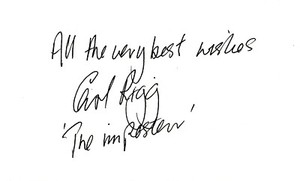 All the very best wishes
Carol Rigg
'The imposters'